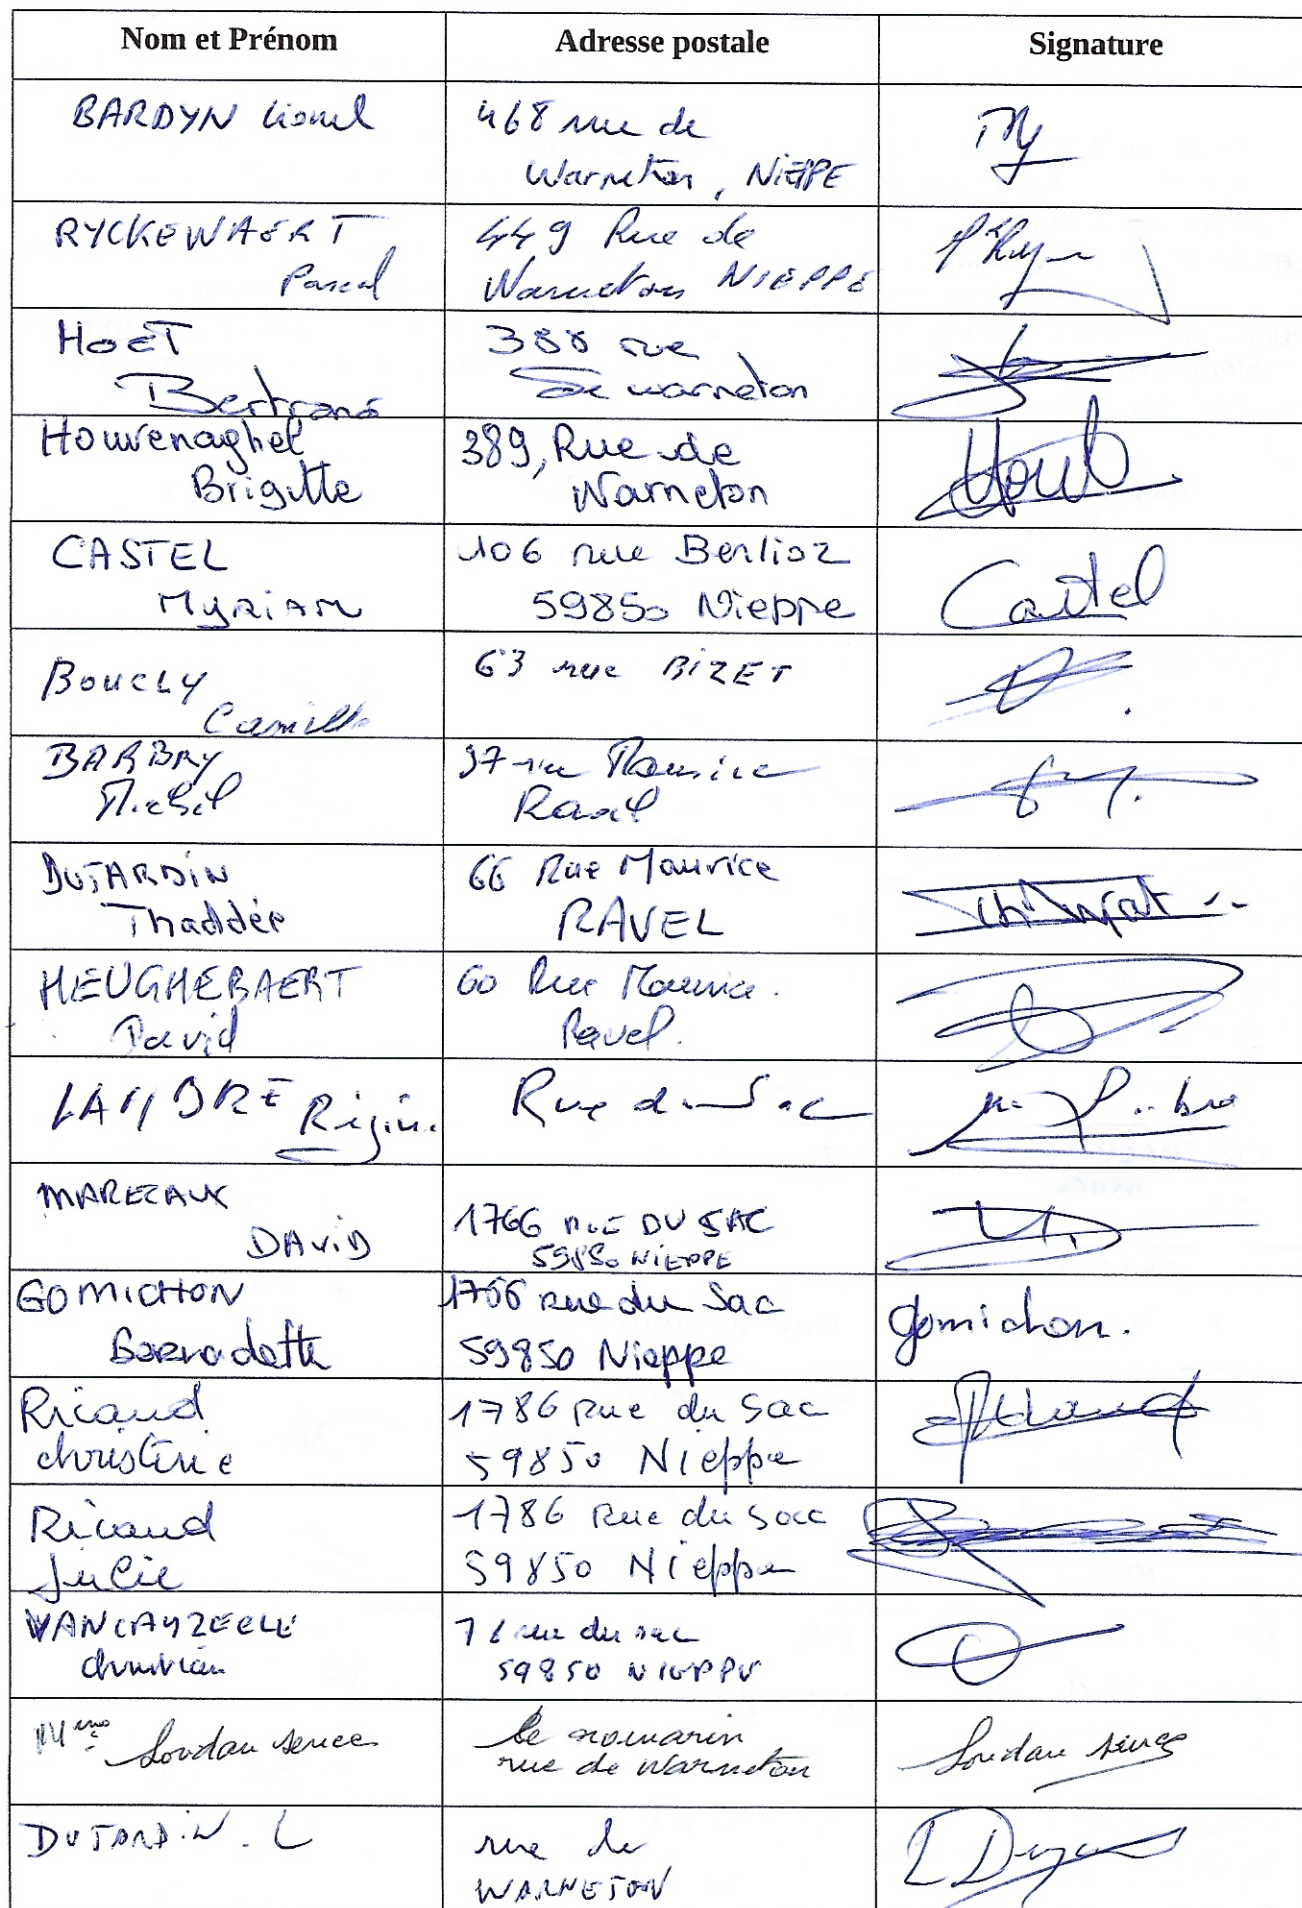 Nom et Prénom
Adresse postale
Signature
BARDYN Lionel
468 rue de
Warneton, NIEPPE
RYCKEWAERT
Pascal
449 Rue de
Warneton NIEPPE
HOET
Bertrand
388 rue
De warneton
Houvenaghel
Brigitte
389, Rue de
Warneton
CASTEL
MYRIAM
106 rue Berlioz
59850 Nieppe
Castel
BOUCLY
Camille
63 rue BIZET
BARBRY
Michel
37 rue Maurice
Ravel
DUJARDIN
Thaddée
66 Rue Maurice
RAVEL
HEUGHEBAERT
David
60 Rue Maurice.
Ravel.
Rue du Sac
MAREZAUX
DAVID
1766 RUE DU SAC
59850 NIEPPE
GOMICHON
Bernadette
1766 rue du Sac
59850 Nieppe
gomichon.
Ricaud
christine
1786 rue du Sac
59850 Nieppe
Ricaud
Julie
1786 Rue du Sac
59850 Nieppe
VANCAYZEELE
christian
rue du sac
59850 NIEPPE
Mme
le romarin
rue de Warneton
DUJARDIN. L
rue de
WARNETON